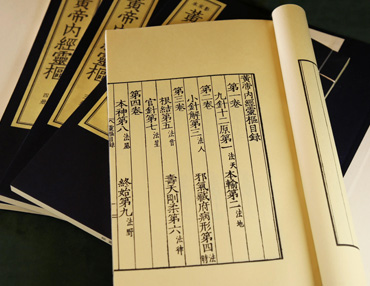 黃帝內經靈樞目錄
第一卷
九針十二原第一 法天 本輸第二 法地
第二卷
小針解第三 法人 邪氣藏府病形第四 法時
第三卷
根結第五 法音 壽夭剛柔第六 法律
官針第七 法星
第四卷
本神第八 法風 終始第九 法野
黃帝內經靈樞
黃帝內經靈樞
黃帝內經靈樞